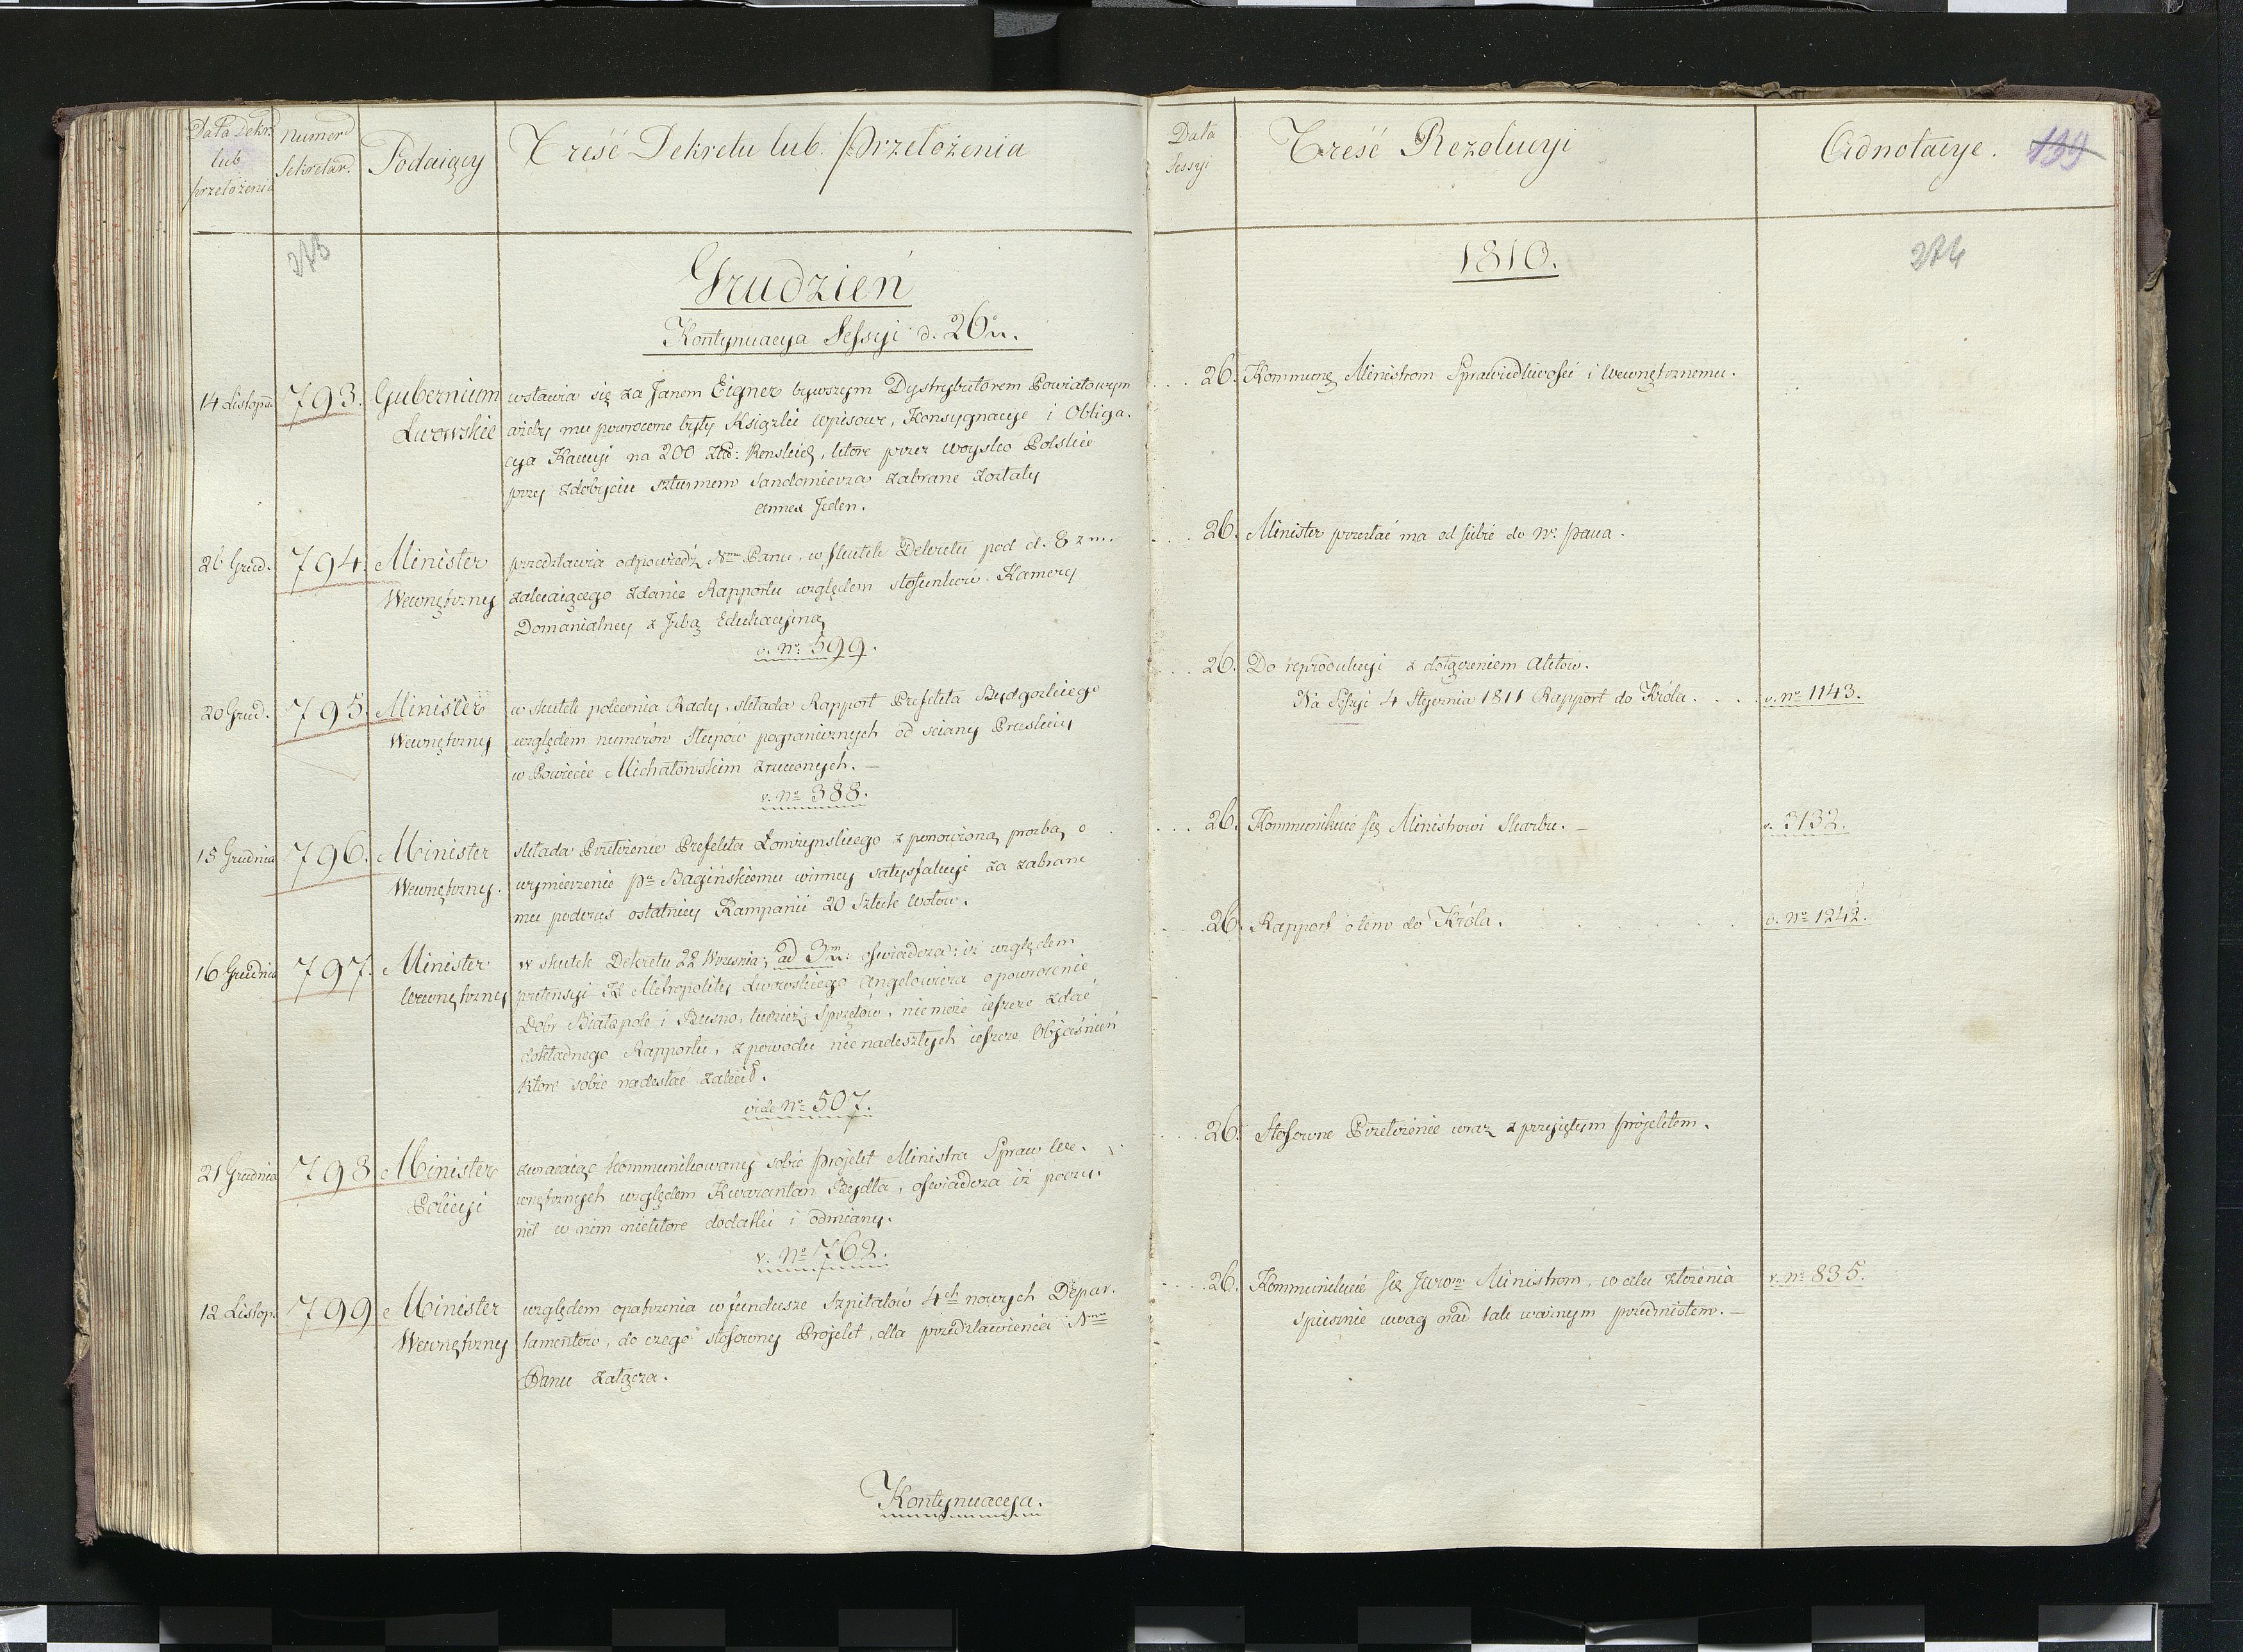 Data Dekr.
lub
przełożenia
Numer
Sekretar.
Podaiący
Treść Dekretu lub Przełożenia
273
Grudzień
Kontynuacya Sessyi d. 26 n.
14 Listopa.
793.
Gubernium
Lwowskie
wstawia się za Janem Eigner bywszym Dystrybutorem Powiatowym
ażeby mu powrócone były Ksiązki wpisowe, Konsygnacye i Obliga.
cya Kaucyi na 200 Złł: Renskich, które przez woysko Polskie
przy zdobyciu szturmem Sandomierza zabrane zostały
Annex Jeden.
21 Grud.
794.
Minister
Wewnętrzny
przedstawia odpowiedź Nmu Panu, w skutek Dekretu pod d. 8 z m.
zalecaiącego zdanie Rapportu względem stosunków Kamery
Domanialney z Izbą Edukacyiną
v. No 599.
20 Grud.
795.
Minister
Wewnętrzny
w skutek polecenia Rady, składa Rapport Prefekta Bydgoskiego
względem numerów Słupów pogranicznych od sciany Pruskiey
w Powiecie Michałowskim zrzuconych. —
v. No 388.
15 Grudnia
796.
Minister
Wewnętrzny.
składa Przełożenie Prefekta Łomżyńskiego z ponowioną prozbą o
wymierzenie Pu Bagińskiemu winney satysfakcyi za zabrane
mu podczas ostatniey Kampanii 20 Sztuk wołów.
16 Grudnia
797.
Minister
Wewnętrzny
w skutek Dekretu 22 Wrzesnia, ad 3m n: oswiadcza: iż względem
pretensyi X Metropolity Lwowskiego Angelowicza o powrócenie
Dobr Białopole i Busno, tudzież Sprzętów, nie może ieszcze zdać
dokładnego Rapportu, z powodu nie nadeszłych ieszcze Obiaśnień
które sobie nadesłać zalecił.
vide No 507.
21 Grudnia
798.
Minister
Policyi
zwracaiąc kommunikowany sobie projekt Ministra Spraw We.
wnętrznych względem Kwarantan Bydła, oswiadcza iż poczy.
nił w nim niektóre dodatki i odmiany.
v. No 762.
12 Listop.
799.
Minister
Wewnętrzny
względem opatrzenia w fundusze Szpitalów 4ch nowych Depar.
tamentów, do czego stosowny Projekt, dla przedstawienia Nmu
Panu załącza.
Kontynuacya.
Data
Sessyi
Treść Rezolucyi
Adnotacye.
139
1810.
274
26.
Kommunę Ministrom Sprawiedliwości i Wewnętrznemu.
26.
Minister przesłać ma od siebie do N. Pana.
26.
Do reprodukcyi z dołączeniem Aktów.
Na Sessyi 4 Stycznia 1811 Rapport do Króla.
v. No 1143.
26.
Kommunikuie się Ministrowi Skarbu. —
v. 3132.
26.
Rapport o tem do Króla.
v. No 1242.
26.
Stosowne Przełożenie wraz z przyiętym projektem.
26.
Kommunikuie się Ministrom, w celu złożenia
spiesznie uwag nad tak ważnym przedmiotem. —
v. No 835.